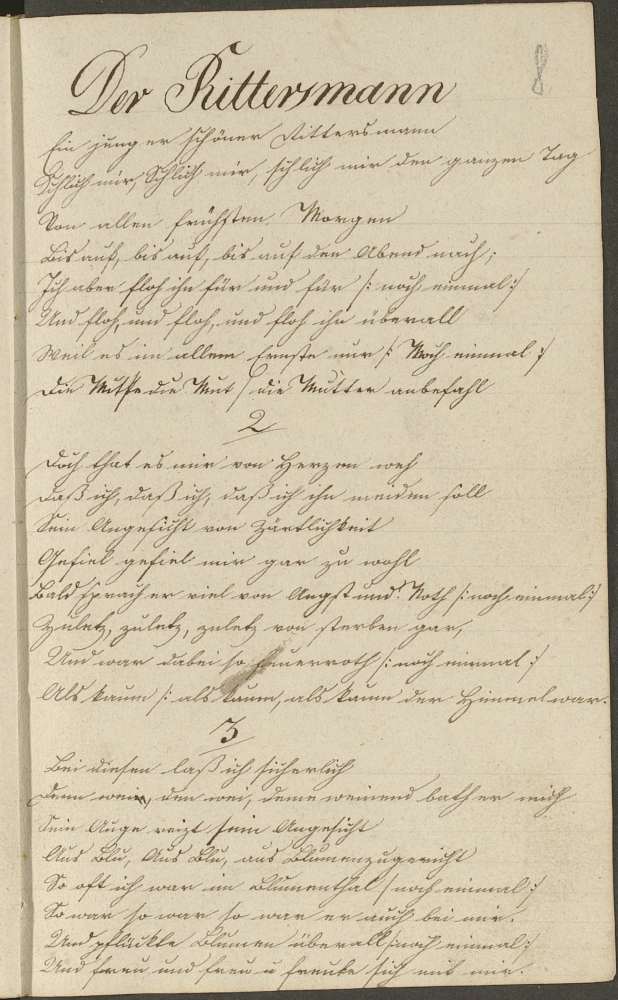 8
Der Rittersmann
Ein junger schöner Rittersmann
Schlich mir, Schlich mir, schlich mir den ganzen Tag
Von allen frühsten Morgen
Bis auf, bis auf, bis auf den Abend nach;
Ich aber floh ihn für und für /: noch einmal :/
Und floh, und floh, und floh ihn überall
Weil es im allem Ernste nur /: Noch einmal :/
Die Mutte die Mut / die Mutter anbefahl
2
Doch that es mir von Herzen weh
Daß ich, daß ich, daß ich ihn meiden soll
Sein Angesicht von Zärtlichkeit
Gefiel gefiel mir gar zu wohl
Bald sprach er viel von Angst und Noth /: noch einmal :/
Zuletz, zuletz, zuletz von sterben gar,
Und war dabei so feuerroth /: noch einmal :/
Als kaum /: als kaum, als kaum der Himmel war.
3
Bei diesen laß ich sicherlich
Denn wein, den wei, denn weinend bath er mich
Sein Auge reizt sein Angesicht
Aus Blu, Aus Blu, aus Blumenzugericht
So oft ich war im Blumenthal / noch einmal :/
So war so war so war er auch bei mir.
Und pflückte Blumen überall / noch einmal :/
Und freu und freu u freute sich mit mir.